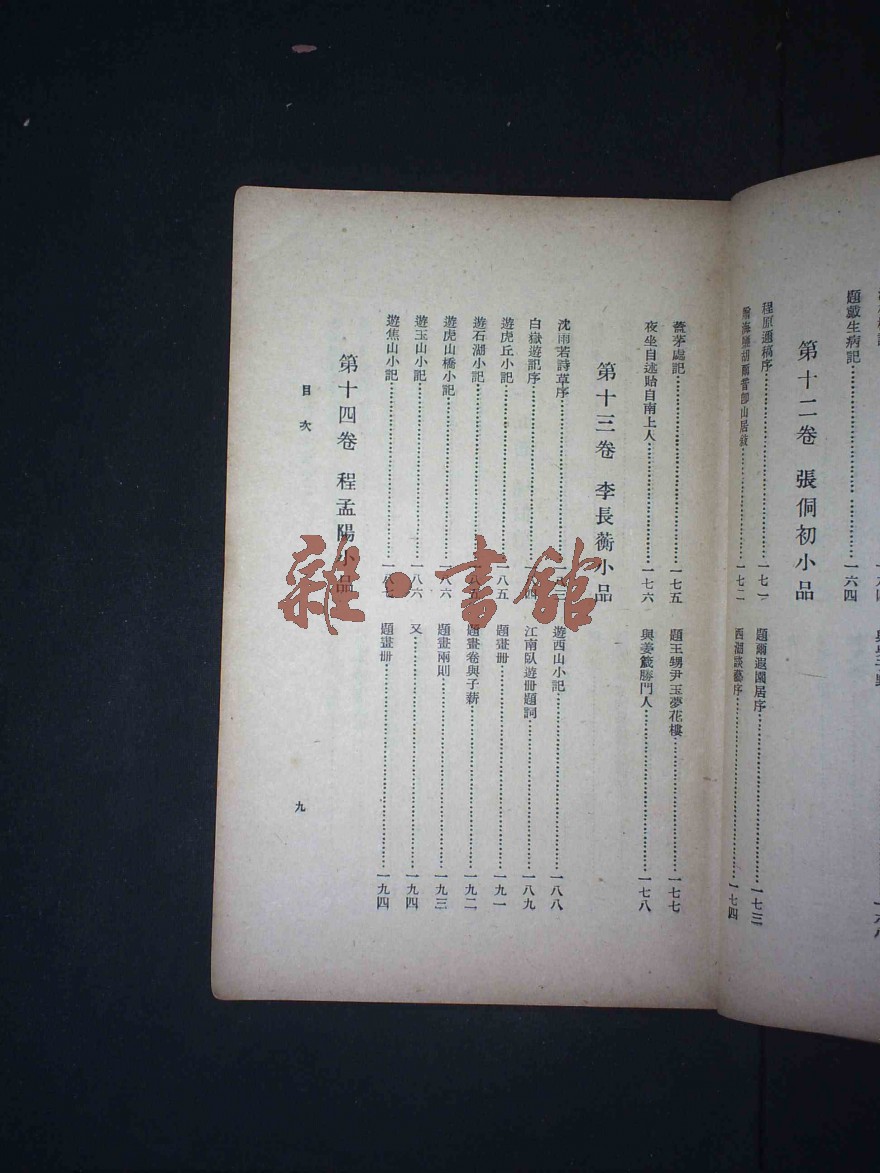 題戲生病記……一六四
第十二卷 張侗初小品
程原邇稿序……一七一
題爾遐園居序……一七三
一七二
西湖談藝序……一七四
薝茅處記……一七五
題王甥尹玉夢花樓……一七七
夜坐自述貼自南上人……一七六
與姜箴勝門人……一七八
第十三卷 李長蘅小品
沈雨若詩草序……一八三
遊西山小記……一八八
白嶽遊記序……一八四
江南臥遊冊題詞……一八九
遊虎丘小記……一八五
題畫冊……一九一
遊石湖小記……一八五
題畫卷與子薪……一九二
遊虎山橋小記……一八六
題畫兩則……一九三
遊玉山小記……一八六
又……一九四
遊焦山小記……一八七
題畫冊……一九四
第十四卷 程孟陽小品
目次
九
雜·書館